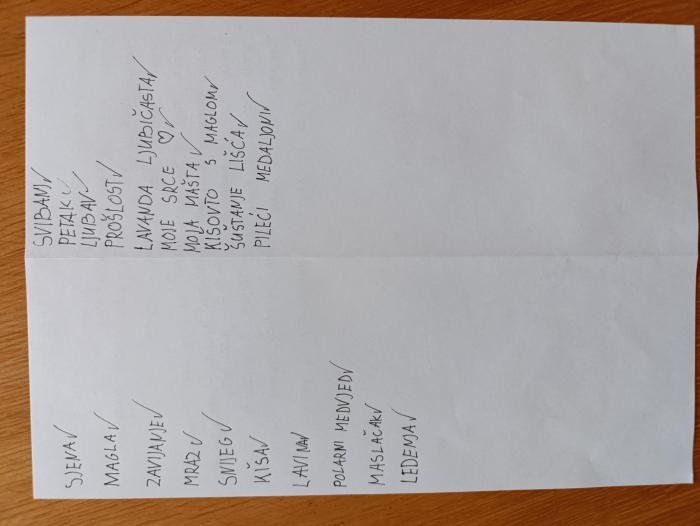 SJENA ✓
MAGLA ✓
ZAVIJANJE ✓
MRAZ ✓
SNIJEG ✓
KIŠA ✓
LAVINA ✓
POLARNI MEDVJED ✓
MASLAČAK ✓
LEDENJA ✓
SVIBANJ ✓
PETAK ✓
LJUBAV ✓
PROŠLOST ✓
LAVANDA LJUBIČASTA ✓
MOJE SRCE ♡ ✓
MOJA MAŠTA ✓
KIŠOVITO S MAGLOM ✓
ŠUŠTANJE LIŠĆA ✓
PILEĆI MEDALJONI ✓